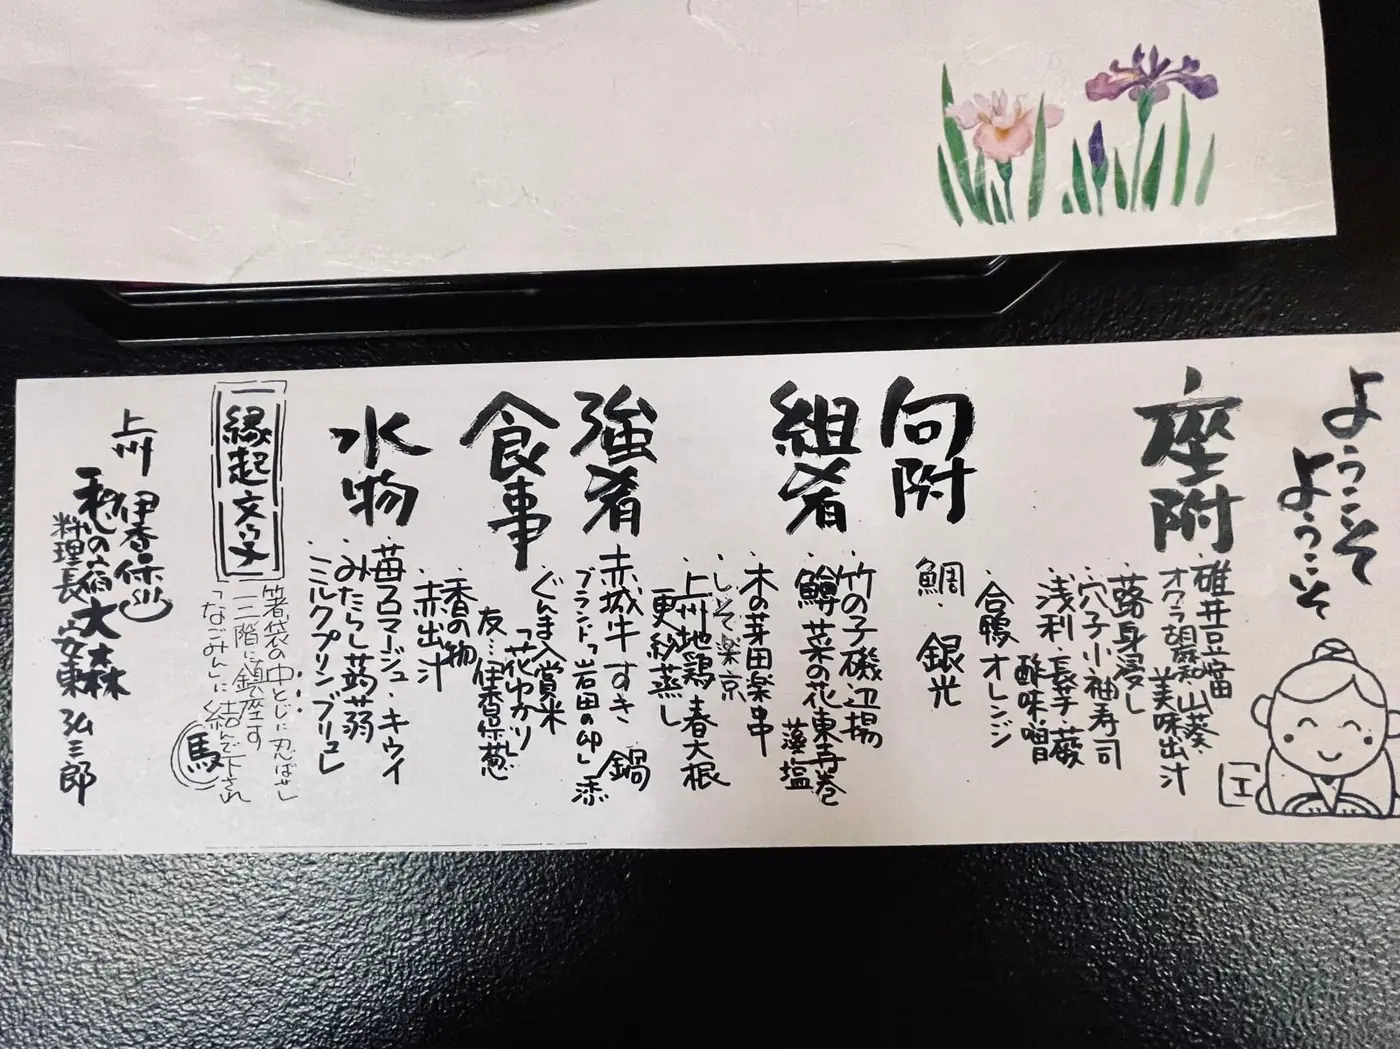 ようこそ
ようこそ
座附
・碓井豆富
オクラ 胡麻和 山葵
美味出汁
・蕗身浸し
・穴子小袖寿司
・浅利・長芋・蕨
酢味噌
・合鴨オレンジ
向附
鯛・銀光
組肴
・竹の子磯辺揚
・鱒菜の花東寺巻
藻塩
・木の芽田楽串
・しそ楽京
・上州地鶏 春大根
更紗蒸し
強肴
赤城牛すき鍋
ブランド「岩田の卵」添
食事
・ぐんま入賞米
「花ゆかり」
友…伊香保葱
・香の物
・赤出汁
水物
・苺ロマージュ・キウイ
・みたらし蒟蒻
・ミルクプリンブリュレ
縁起文字
箸袋の中とじに忍ばせし
一二階に鎮座す
「なごみん」に結んで下され
馬
上州 伊香保
私の宿 大森
料理長 安東 弘三郎
エ